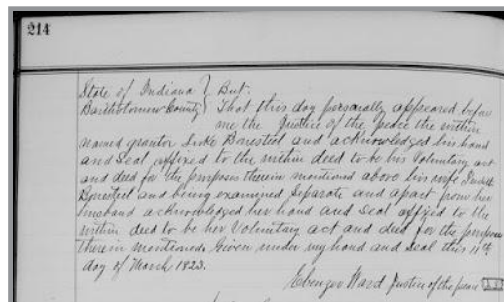 214
State of Indiana } But:
Bartholomew County } That this day personally appeared before
me the Justice of the peace the within
named grantor Luke Bonesteel and acknowledged his hand
and Seal affixed to the within deed to be his Voluntary act
and deed for the purposes therein mentioned above his wife
Bonesteel and being examined Separate and apart from her
husband acknowledged her hand and Seal affixed to the
within deed to be her Voluntary act and deed for the purposes
therein mentioned. Given under my hand and Seal this 11th
day of March 1823.
Ebenezer Ward Justice of the peace